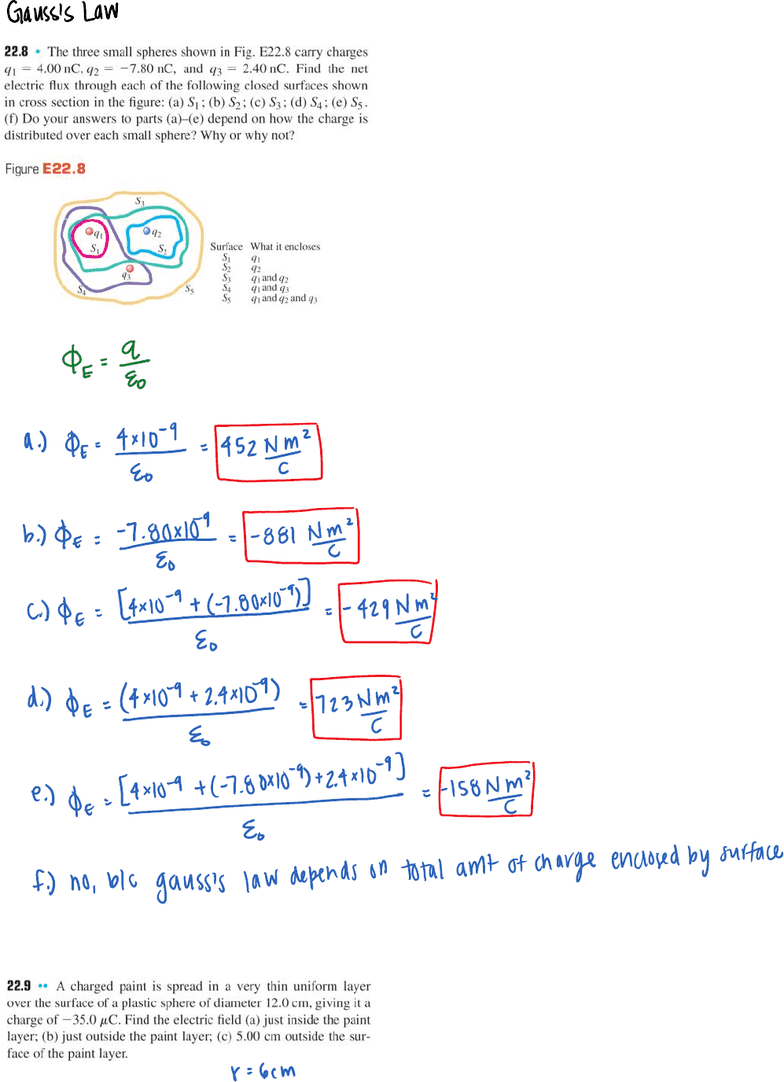 Gauss's Law
22.8 • The three small spheres shown in Fig. E22.8 carry charges
q₁ = 4.00 nC, q₂ = −7.80 nC, and q₃ = 2.40 nC. Find the net
electric flux through each of the following closed surfaces shown
in cross section in the figure: (a) S₁; (b) S₂; (c) S₃; (d) S₄; (e) S₅.
(f) Do your answers to parts (a)–(e) depend on how the charge is
distributed over each small sphere? Why or why not?
Figure E22.8
S₃
q₁ q₂
S₁ S₂
q₃
S₄ S₅
Surface What it encloses
S₁ q₁
S₂ q₂
S₃ q₁ and q₂
S₄ q₁ and q₃
S₅ q₁ and q₂ and q₃
ϕ_E = q/ε₀
a.) ϕ_E = 4×10⁻⁹/ε₀ = 452 Nm²/C
b.) ϕ_E = -7.80×10⁻⁹/ε₀ = -881 Nm²/C
c.) ϕ_E = [4×10⁻⁹ + (-7.80×10⁻⁹)]/ε₀ = -429 Nm²/C
d.) ϕ_E = (4×10⁻⁹ + 2.4×10⁻⁹)/ε₀ = 723 Nm²/C
e.) ϕ_E = [4×10⁻⁹ + (-7.80×10⁻⁹) + 2.4×10⁻⁹]/ε₀ = -158 Nm²/C
f.) no, b/c gauss's law depends on total amt of charge enclosed by surface
22.9 •• A charged paint is spread in a very thin uniform layer
over the surface of a plastic sphere of diameter 12.0 cm, giving it a
charge of −35.0 μC. Find the electric field (a) just inside the paint
layer; (b) just outside the paint layer; (c) 5.00 cm outside the sur-
face of the paint layer.
r = 6cm